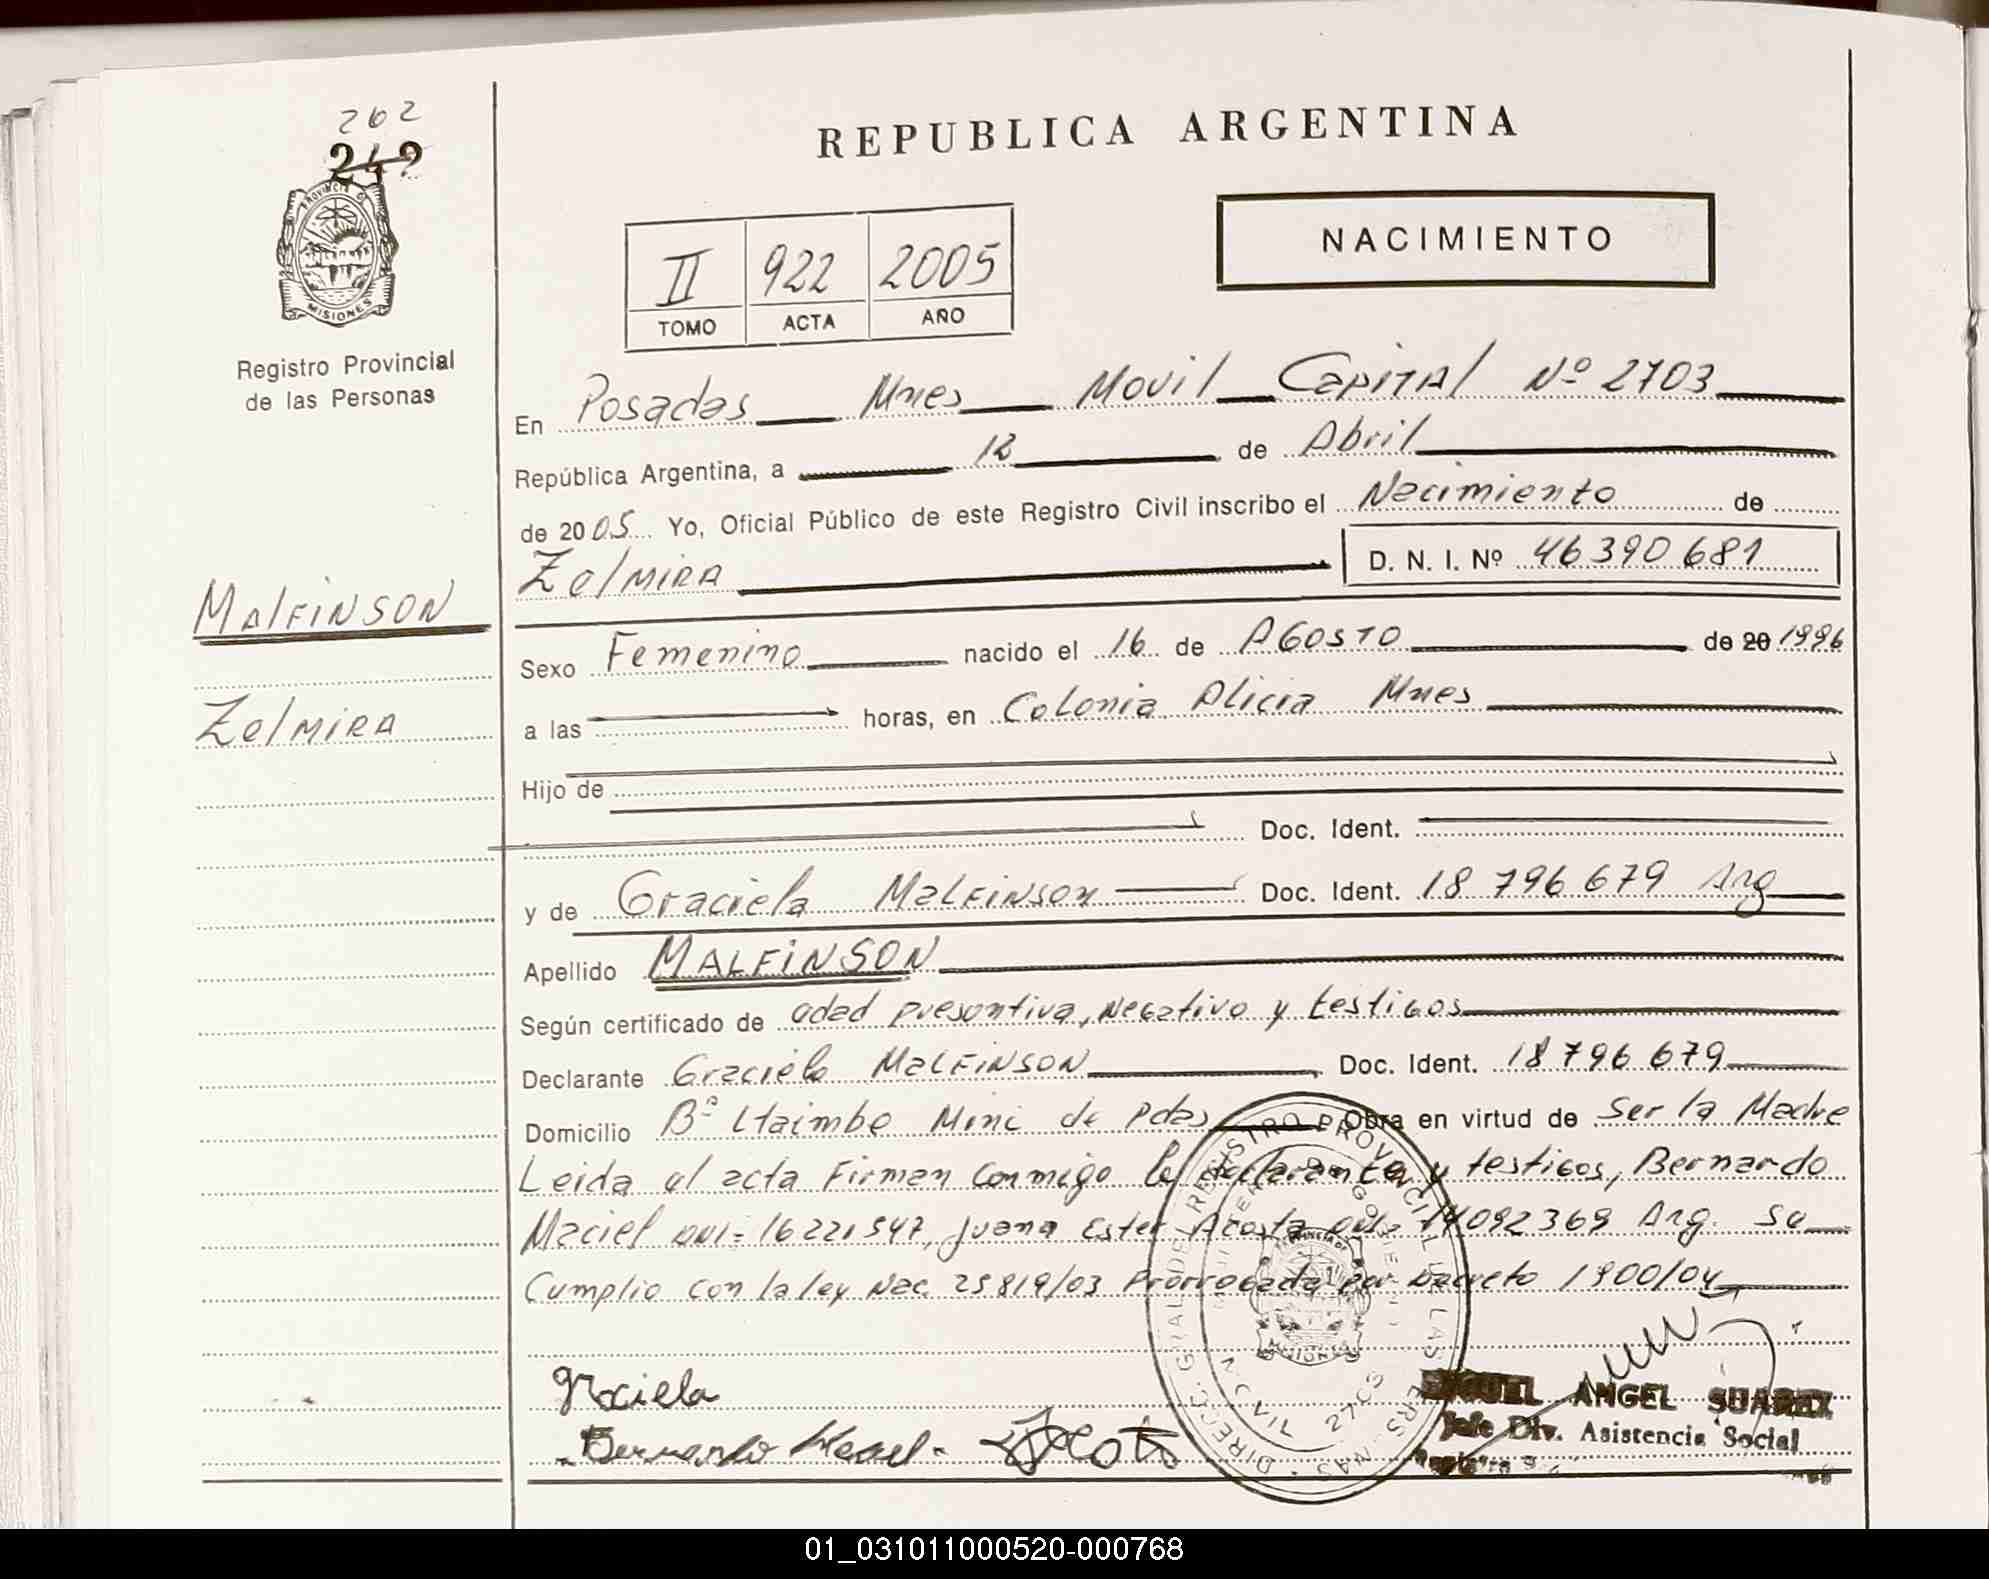 262
242
PROVINCIA DE
MISIONES
Registro Provincial
de las Personas
REPUBLICA ARGENTINA
NACIMIENTO
II 922 2005
TOMO ACTA AÑO
En Posadas Mnes Movil Capital Nº 2703
República Argentina, a 12 de Abril
de 2005 Yo, Oficial Público de este Registro Civil inscribo el Nacimiento de
Zelmira D. N. I. Nº 46390681
Malfinson
Sexo Femenino nacido el 16 de Agosto de 20 1996
Zelmira
a las horas, en Colonia Alicia Mnes
Hijo de
Doc. Ident.
y de Graciela Malfinson Doc. Ident. 18 796 679 Arg
Apellido MALFINSON
Según certificado de edad presontiva, Negativo y testigos
Declarante Graciela Malfinson Doc. Ident. 18 796 679
Domicilio Bº Itaimbe Mini de Pdas Obra en virtud de Ser la Madre
Leida el acta Firman Conmigo la declarante y testigos, Bernardo
Maciel DNI= 16221547, Juana Ester Acosta DNI= 14092369 Arg. se
Cumplio con la ley Nac. 25819/03 Prorrogada por Decreto 1900/04
Graciela
Bernardo
MIGUEL ANGEL SUAREZ
Jefe Div. Asistencia Social
01_031011000520-000768